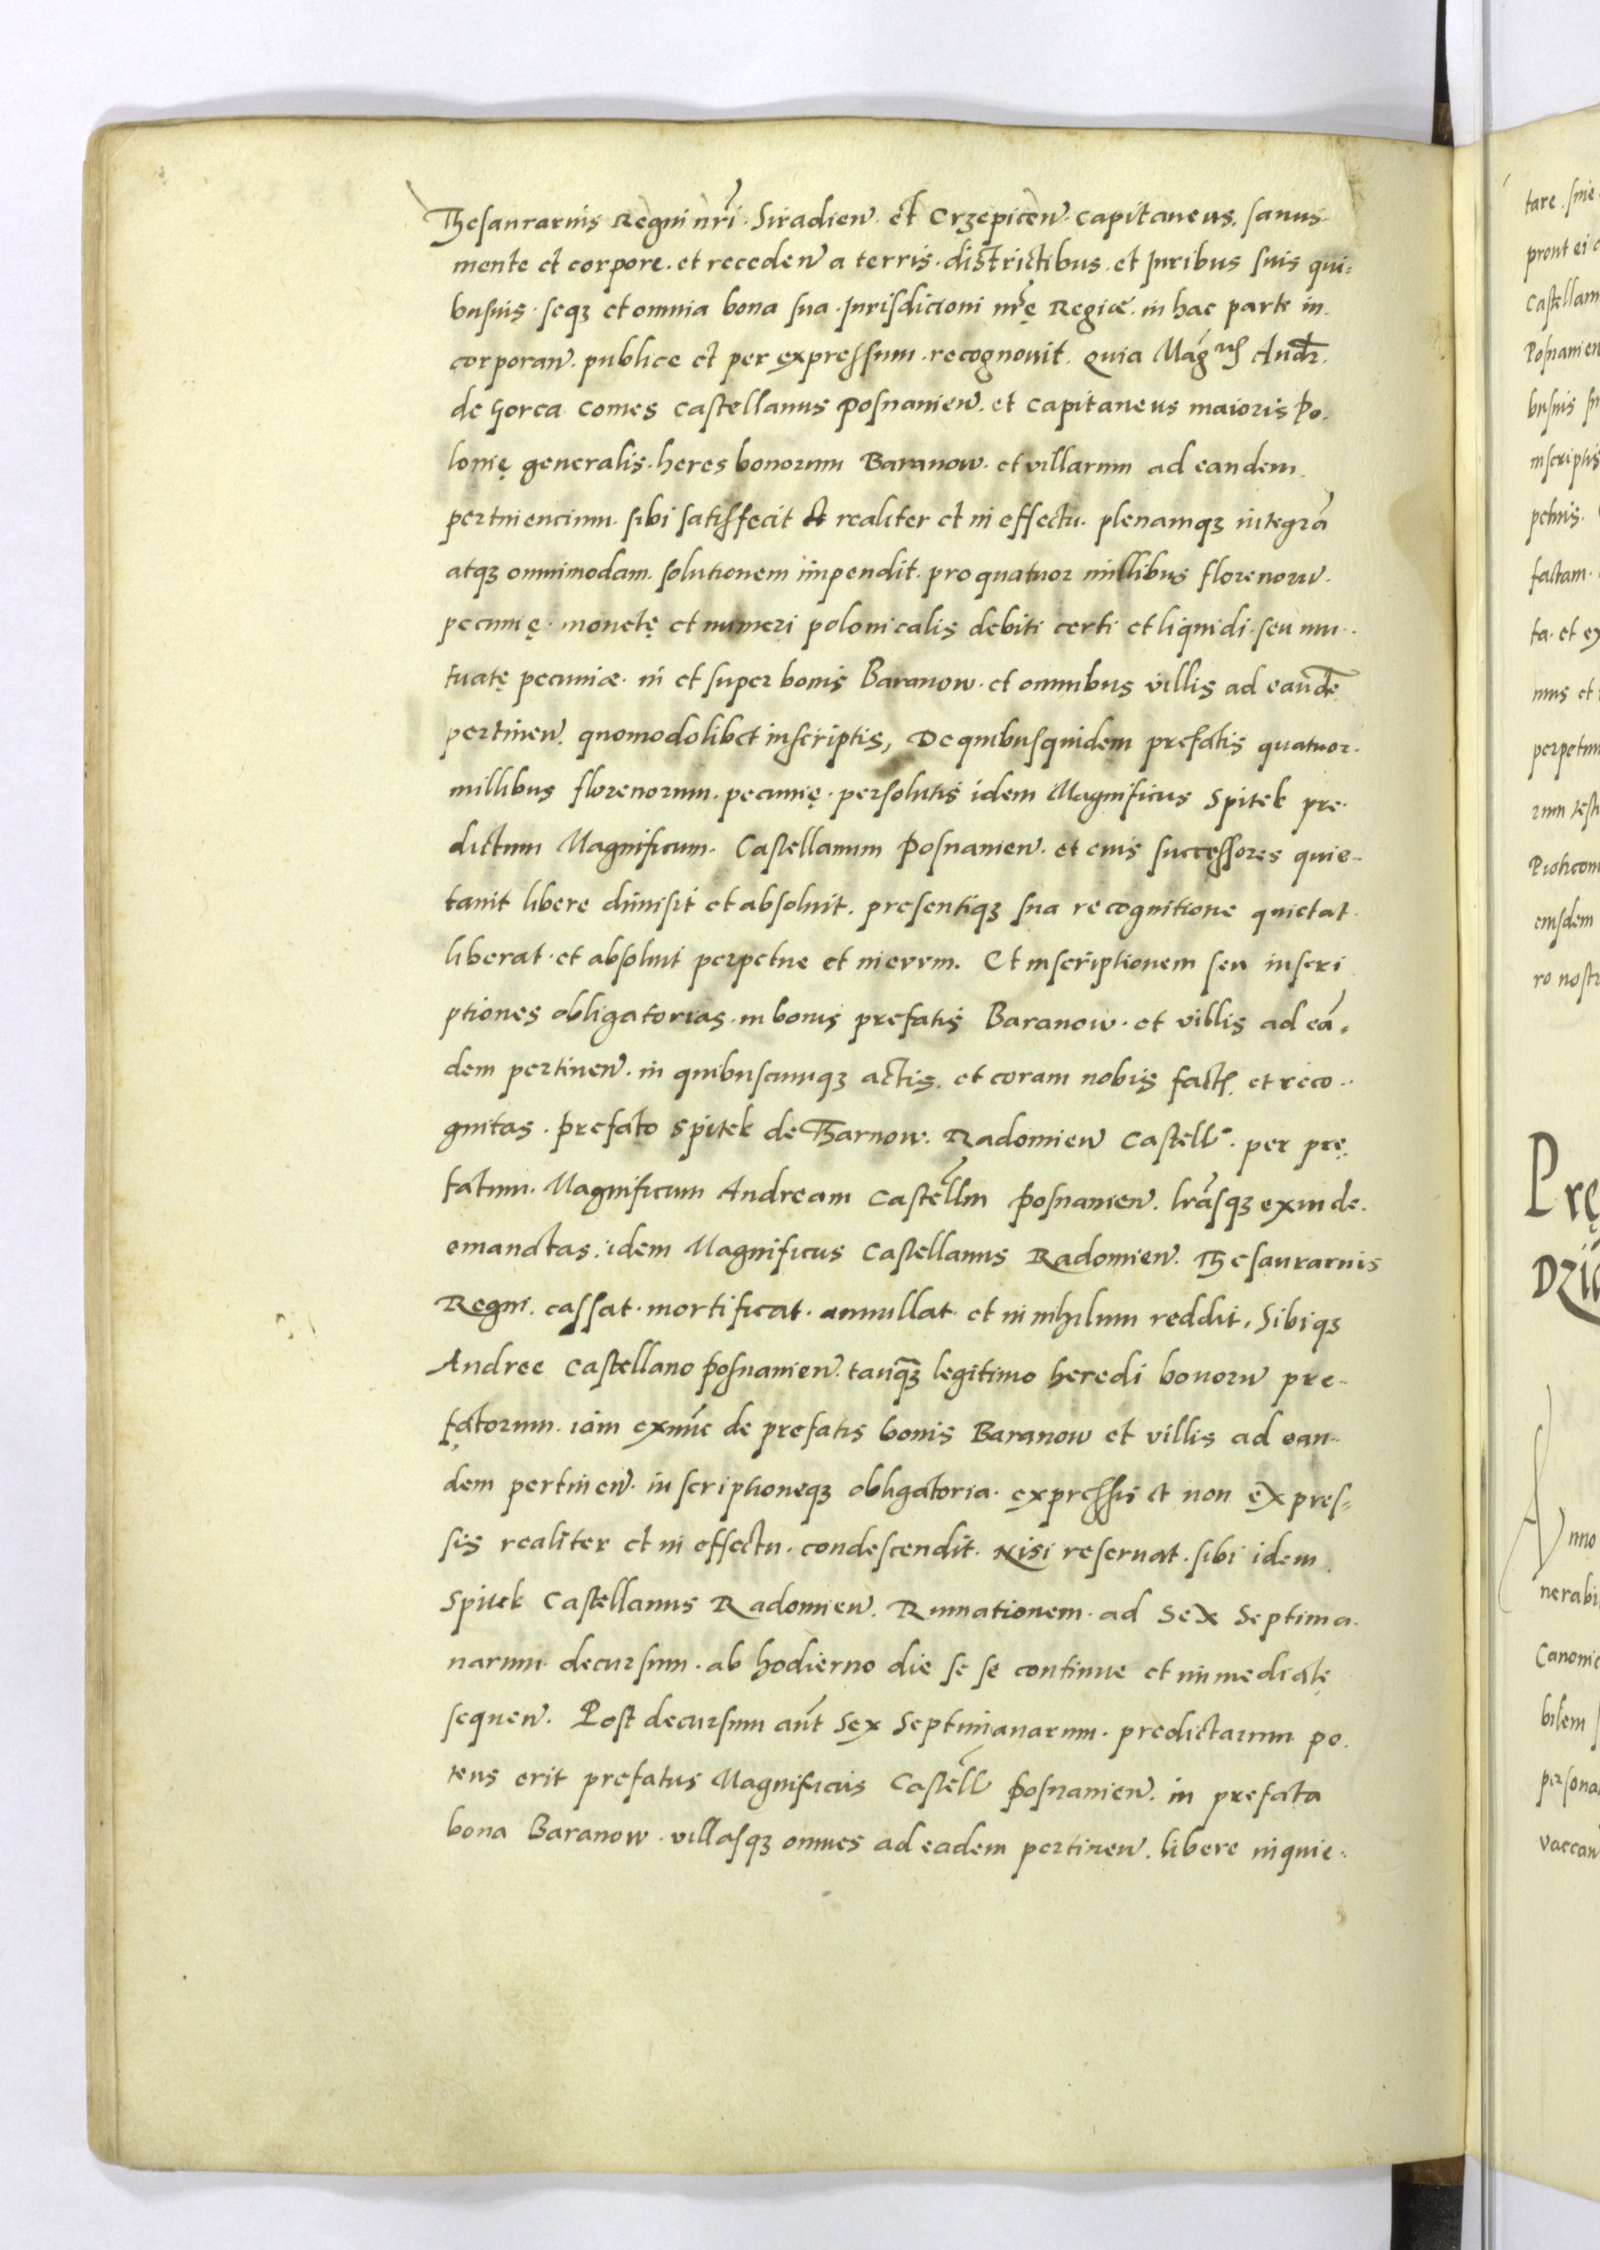 Thesaurarius Regni nr̃i. Siradien̄. et Crzepicen̄. Capitaneus. sanus
mente et corpore. et receden̄ a terris. districtibus. et Juribus suis qui-
busuis. seqꝫ et omnia bona sua. Jurisdicioni nr̃ę Regiæ. in hac parte in.
corporan̄. publice et per expressum. recognouit. Quia Mag^cus Andr̃.
de Gorca Comes Castellanus Posnanien̄. et Capitaneus maioris Po.
lonię generalis. heres bonorum Baranow. et villarum ad eandem
pertinencium. sibi satisfecit et realiter et in effectu. plenamqꝫ integrā
atqꝫ omnimodam. solutionem impendit. pro quatuor millibus florenorū.
pecunię. monetę et numeri polonicalis debiti certi et liquidi. seu mu..
tuatę pecuniæ. in et super bonis Baranow. et omnibus villis ad eandē
pertinen̄. quomodolibet inscriptis, De quibusquidem prefatis quatuor.
millibus florenorum. pecunię. persolutis idem Magnificus Spitek pre.
dictum Magnificum. Castellanum Posnanien̄. et eius successores quie-
tauit libere dimisit et absoluit. presentiqꝫ sua recognitione quietat
liberat. et absoluit perpetue et in evvm. Et inscriptionem seu inscri
ptiones obligatorias. in bonis prefatis Baranow. et villis ad eā-
dem pertinen̄. in quibuscumqꝫ actis. et coram nobis fact̄. et reco..
gnitas. prefato Spitek de Tharnow. Radomien̄ Castell̄. per prę.
fatum. Magnificum Andream Castell̄m Posnanien̄. lr̃asqꝫ exinde.
emanatas. idem Magnificus Castellanus Radomien̄. Thesaurarius
Regni. cassat. mortificat. annullat. et in nihilum reddit. Sibiqꝫ
Andree Castellano Posnanien̄. tanqꝫ legitimo heredi bonorū pre-
fatorum. iam exnūc de prefatis bonis Baranow et villis ad ean-
dem pertinen̄. inscriptioneqꝫ obligatoria. expressis et non expres-
sis realiter et in effectu. condescendit. Nisi reseruat. sibi idem
Spitek Castellanus Radomien̄. Rumationem. ad Sex Septima.
narum decursum. ab hodierno die se se continue et immediatę
sequen̄. Post decursum aūt Sex Septimanarum. predictarum po.
tens erit prefatus Magnificus Castell̄ Posnanien̄. in prefata
bona Baranow. villasqꝫ omnes ad eadem pertinen̄. libere inquie-
tare. sine
prout ei
Castellan
Posnanien
busuis
inscriptis
petuis.
factam.
ta. et ex
mus et
perpetuu
rum testi
Piotrcou
eiusdem
ro nostr
Prę
Dzi
Anno
nerabi
Canonic
bilem
persona
vaccan